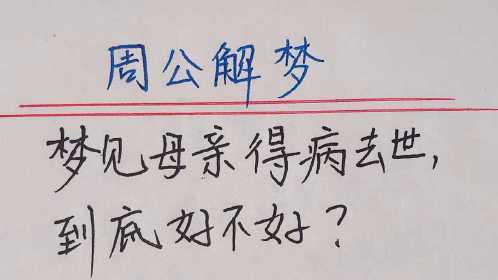 周公解梦
梦见母亲得病去世,
到底好不好?